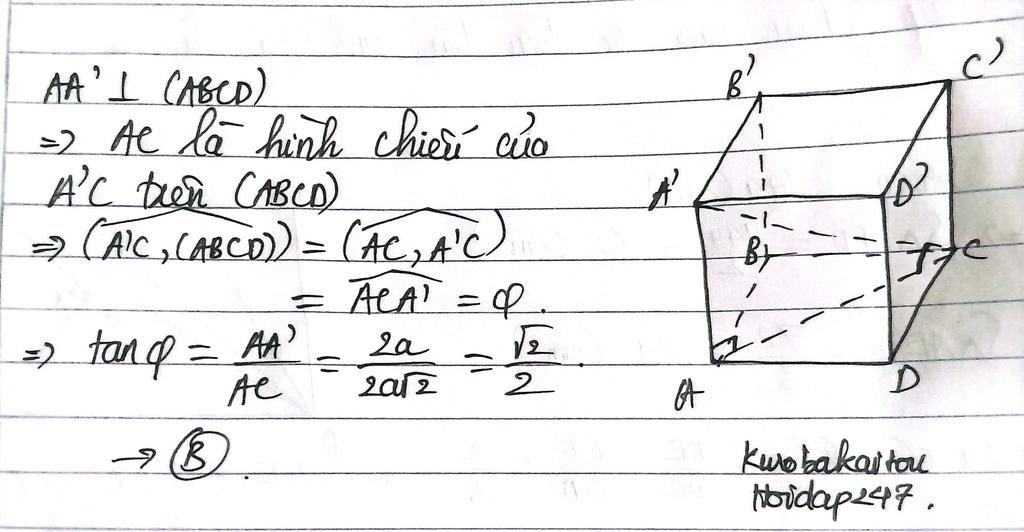 AA' ⊥ (ABCD)
=> AC là hình chiếu của
A'C trên (ABCD)
=> (A'C, (ABCD)) = (AC, A'C)
= ACA' = φ.
=> tan φ = AA'/AC = 2a/2a√2 = √2/2.
→ B.
B'
C'
A'
D'
B
C
A
D
Kurobakaitou
Hoidap247.